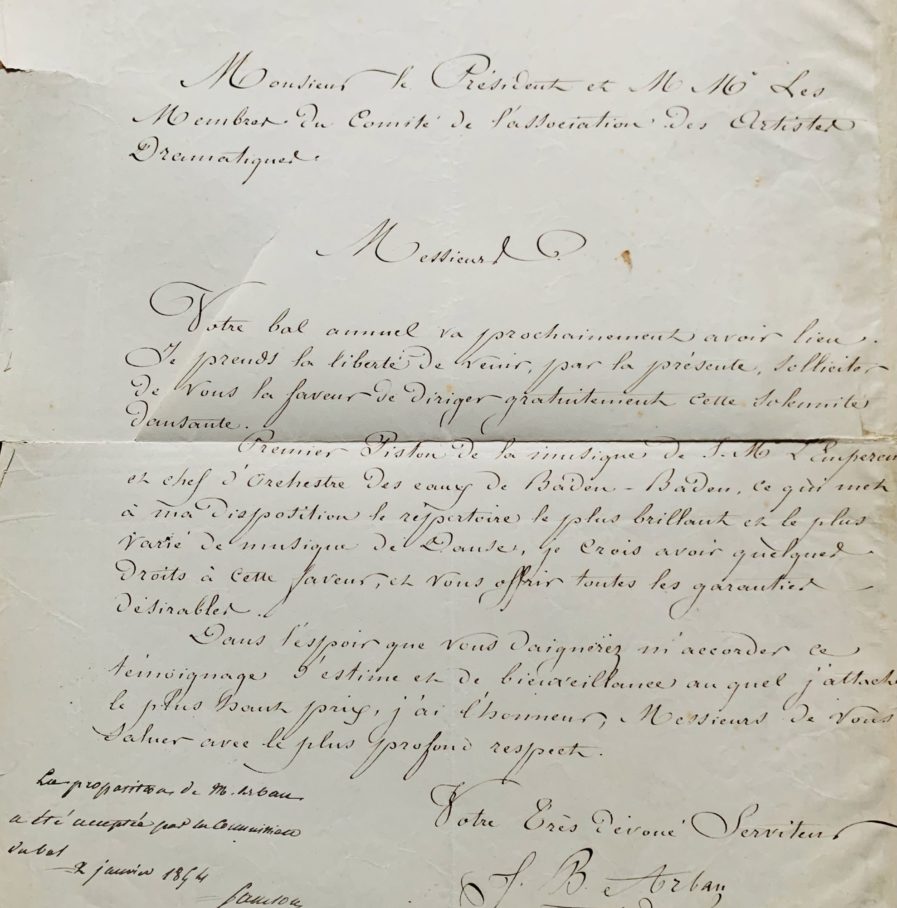 Monsieur le Président et M Mrs Les
Membres du Comité de l'association des Artistes
Dramatiques.
Messieurs
Votre bal annuel va prochainement avoir lieu.
Je prends la liberté de venir, par la présente, solliciter
de Vous la faveur de diriger gratuitement cette solennité
dansante.
Premier Piston de la musique de S. M L'Empereur
et chef d'Orchestre des eaux de Baden-Baden, ce qui met
à ma disposition le répertoire le plus brillant et le plus
varié de musique de Danse, je crois avoir quelques
droits à cette faveur, et vous offrir toutes les garanties
désirables.
Dans l'espoir que vous daignerez m'accorder ce
témoignage d'estime et de bienveillance auquel j'attache
le plus haut prix, j'ai l'honneur, Messieurs de Vous
Saluer avec le plus profond respect.
Votre Très dévoué Serviteur
J. B. Arban
La proposition de M. Arban
a été acceptée par la Commission
du bal
2 janvier 1854
Samson